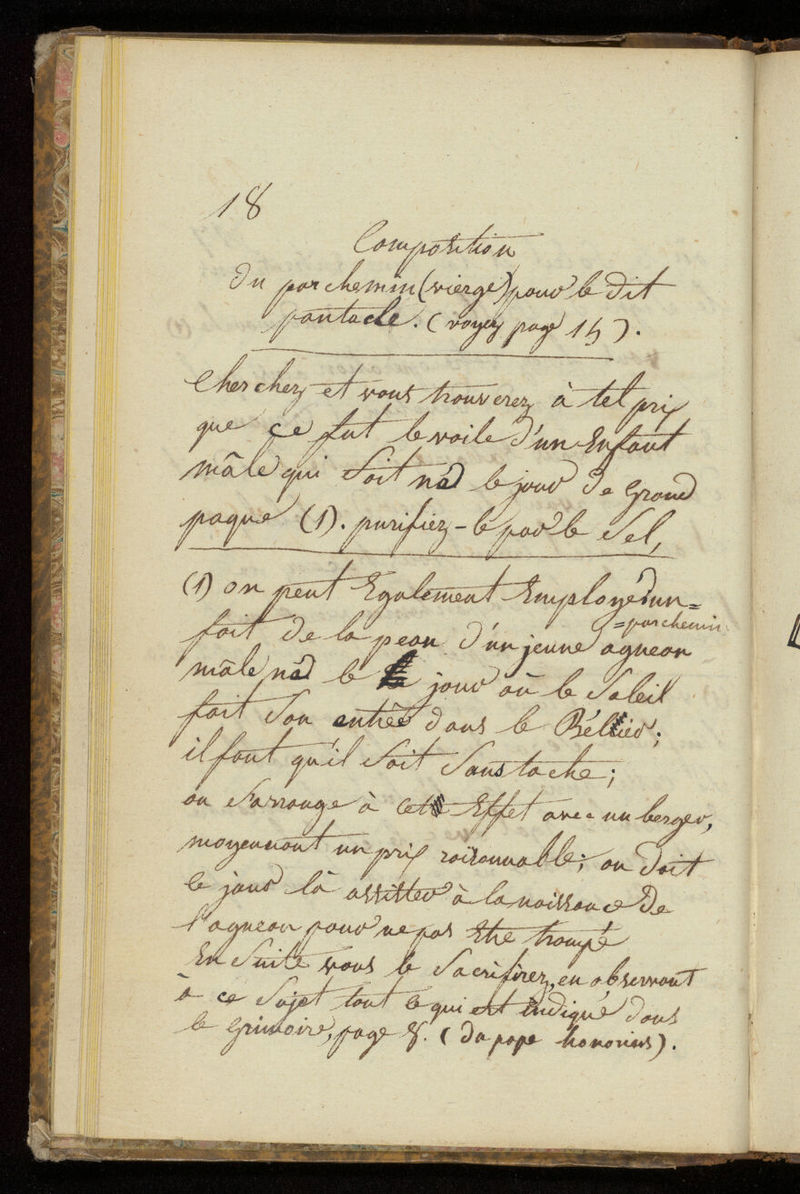 18
Composition
du parchemin (vierge) pour le dit
pantacle. (voyez page 15).
Cherchez et vous trouverez à tel prix
que ce fut le voile d'un Enfant
mâle qui soit né le jour de grand
paque (1). purifiez-le par le sel,
(1) on peut Egalement Employé d'un=
=parchemin
fait de la peau d'un jeune agneau
mâle né le jour où le Soleil
fait son entrée dans le Bélier;
il faut qu'il soit sans tache;
on s'arrange à cet Effet avec un berger,
moyennant un prix raisonnable; on doit
ce jour là assister à la naissance de
l'agneau pour ne pas Etre trompé
En suite vous le Sacrifirez, en observant
à ce sujet tout ce qui est indiqué dans
le Grimoire, page 8. (du pape honorius).